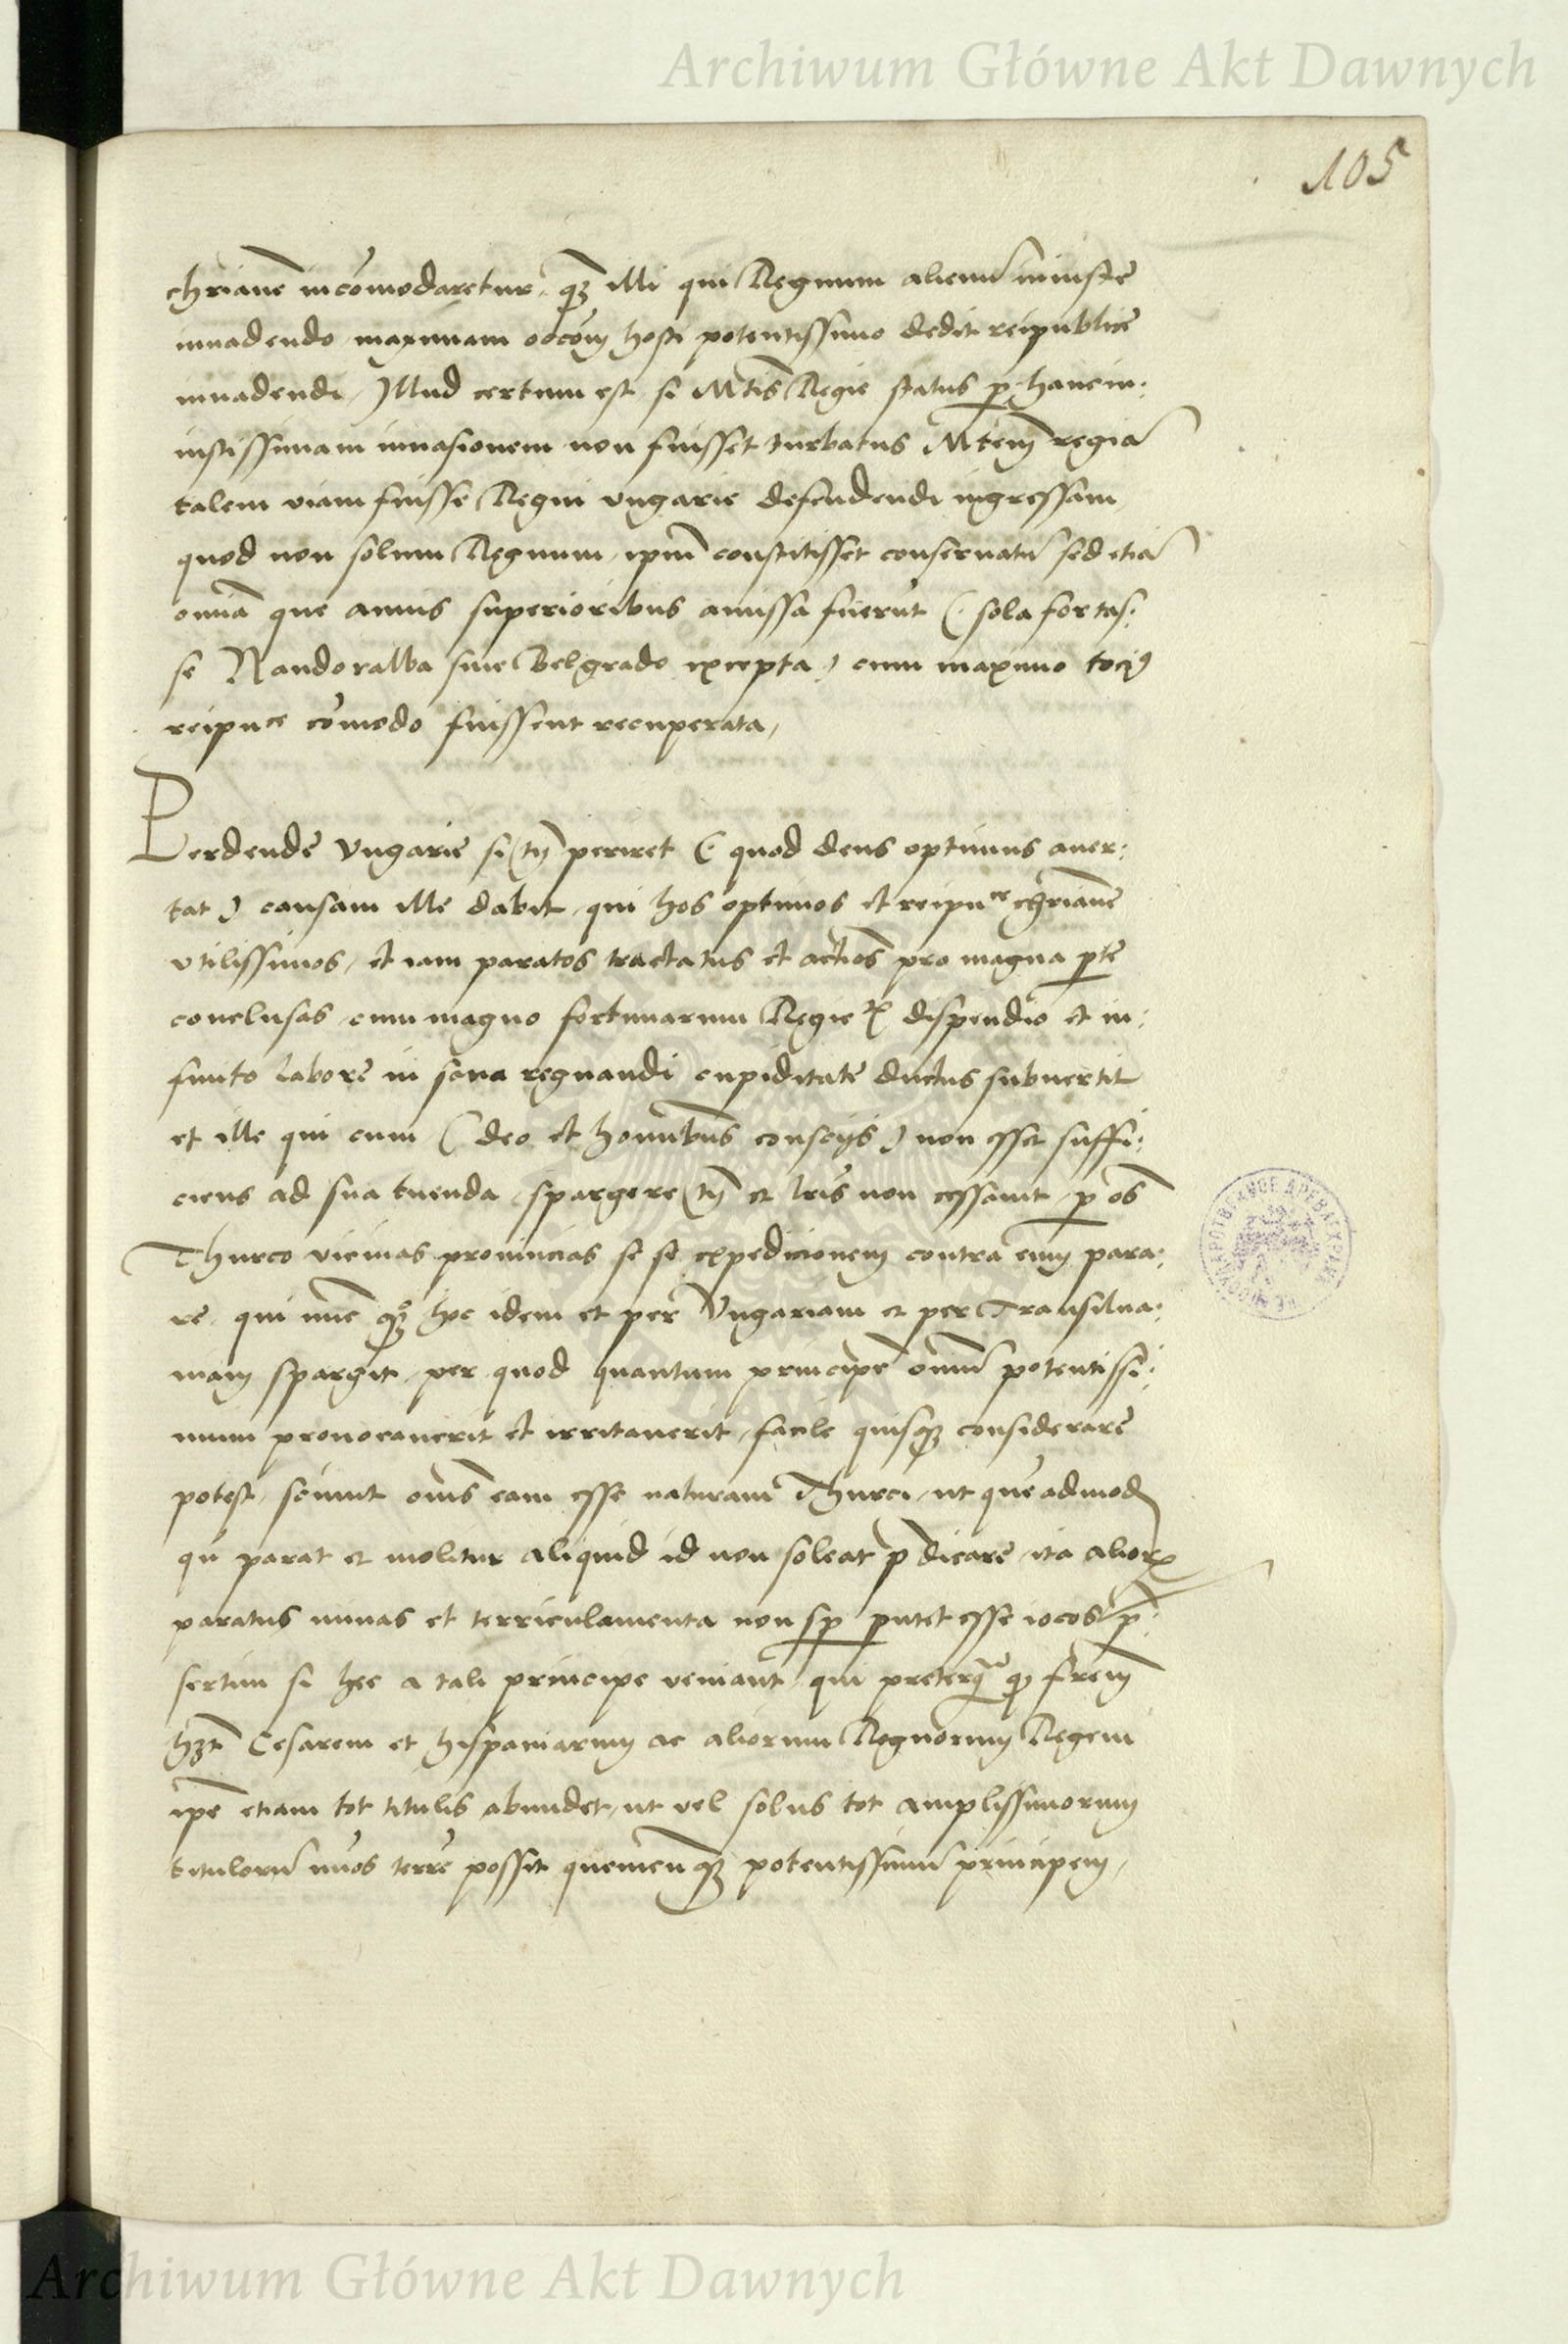 Archiwum Główne Akt Dawnych
105
chrianẽ incõmodaretur, qȝ illi qui Regnum alienũ iniuste
inuadendo maximam occõm hosti potentissimo dedit reipublicę
inuadendi, Illud certum est si Mtis Regie status p hanc in:
iustissimam inuasionem non fuisset turbatus Mtem regiã
talem viam fuisse Regni vngarie defendendi ingressam,
quod non solum Regnum ipm̃ constitisset conseruatũ sed etiã
omĩa que annis superioribus amissa fuerũt ( sola fortas:
se Nandoralba siue Belgrado excepta ) cum maximo toci9
reipuce cõmodo fuissent recuperata,
Perdende Vngarie si tñ periret ( quod deus optimus auer:
tat ) causam ille dabit, qui hos optimos et reipuce chrianẽ
vtilissimos, et iam paratos tractatus et actiões pro magna pte
conclusas, cum magno fortunarum Regie dispendio et in:
finito labore in sana regnandi cupiditate ductus subuertit
et ille qui cum ( deo et homĩbus conscijs ) non esset suffi:
ciens ad sua tuenda, spargere tñ et lr̃is non cessauit, p oẽs
Thurco vicinas prouincias se se expedicionem contra eum para:
re, qui nũc qȝ hoc idem et per Vngariam et per Transilua:
niam spargit, per quod quantum principẽ omniũ potentissi:
mum prouocauerit et irritauerit, facile quisqȝ considerare
potest, sciunt oẽs eam esse naturam Thurci, ut quẽadmod
qñ parat et molitur aliquid id non soleat p̃dicare, ita alioꝝ
paratus minas et terriculamenta non sp putet esse iocos p̃:
sertim si hec a tali principe veniant, qui preterq̃ qȝ frẽm
hȝt Cesarem et hispaniarum ac aliorum Regnorum Regem
ipẽ etiam tot titulis abundet, ut vel solus tot amplissimorum
titulorũ nũos terrẽ possit quemcunqȝ potentissimũ principem,
Archiwum Główne Akt Dawnych